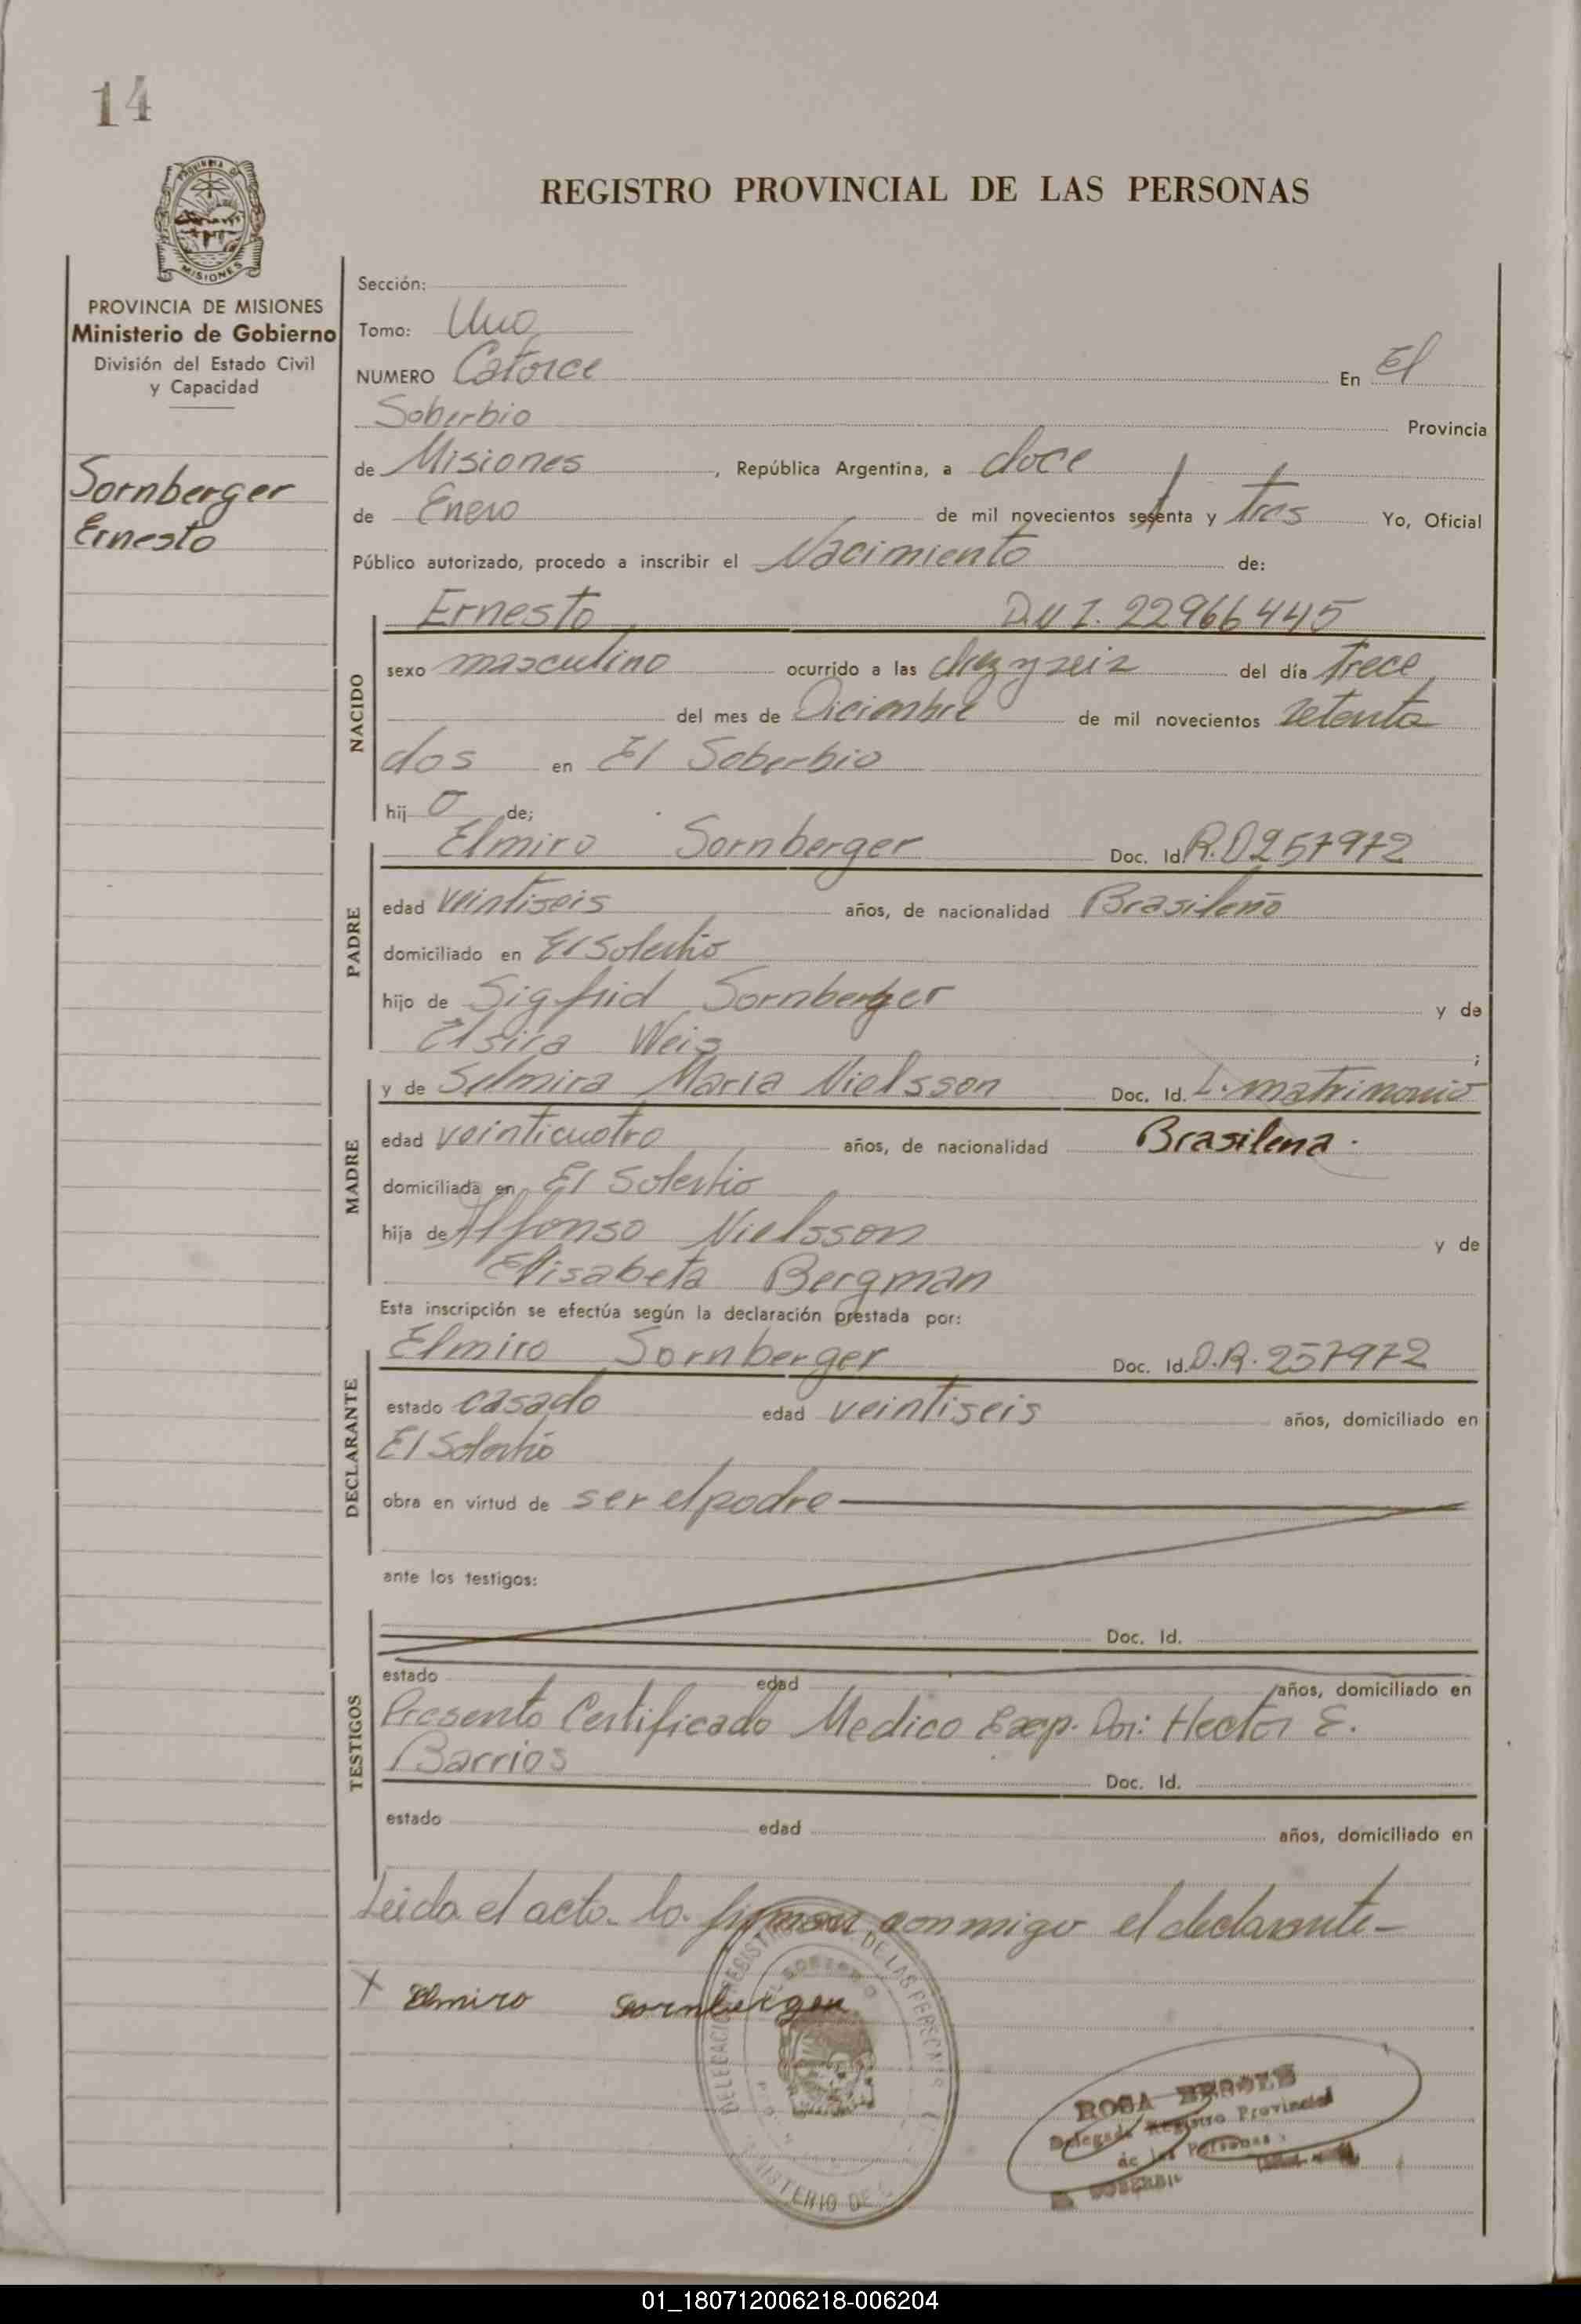 14
PROVINCIA DE
MISIONES
REGISTRO PROVINCIAL DE LAS PERSONAS
PROVINCIA DE MISIONES
Ministerio de Gobierno
División del Estado Civil
y Capacidad
Sornberger
Ernesto
Sección:
Tomo: Uno
NUMERO Catorce En El
Soberbio Provincia
de Misiones, República Argentina, a doce
de Enero de mil novecientos sesenta y tres Yo, Oficial
Público autorizado, procedo a inscribir el Nacimiento de:
NACIDO
Ernesto D.N.I. 22966445
sexo masculino ocurrido a las diez y seis del día trece
del mes de Diciembre de mil novecientos setenta
dos en El Soberbio
hijo de;
PADRE
Elmiro Sornberger Doc. Id. R.D257972
edad veintiseis años, de nacionalidad Brasileño
domiciliado en El Soberbio
hijo de Sigfrid Sornberger y de
Elsira Weis ;
MADRE
y de Selmira Maria Nielsson Doc. Id. L. matrimonio
edad veinticuatro años, de nacionalidad Brasilena.
domiciliada en El Soberbio
hija de Alfonso Nielsson y de
Elisabeta Bergman
Esta inscripción se efectúa según la declaración prestada por:
DECLARANTE
Elmiro Sornberger Doc. Id. D.R. 257972
estado casado edad veintiseis años, domiciliado en
El Soberbio
obra en virtud de ser el padre
ante los testigos:
TESTIGOS
Doc. Id.
estado edad años, domiciliado en
Presento Certificado Medico Exp. Por: Hector E.
Barrios
Doc. Id.
estado edad años, domiciliado en
Leida el acta la firman conmigo el declarante-
X Elmiro Sornberger
DE LAS PERSONAS
ROSA
Delegada Registro Provincial
de las Personas
SOBERBIO
01_180712006218-006204